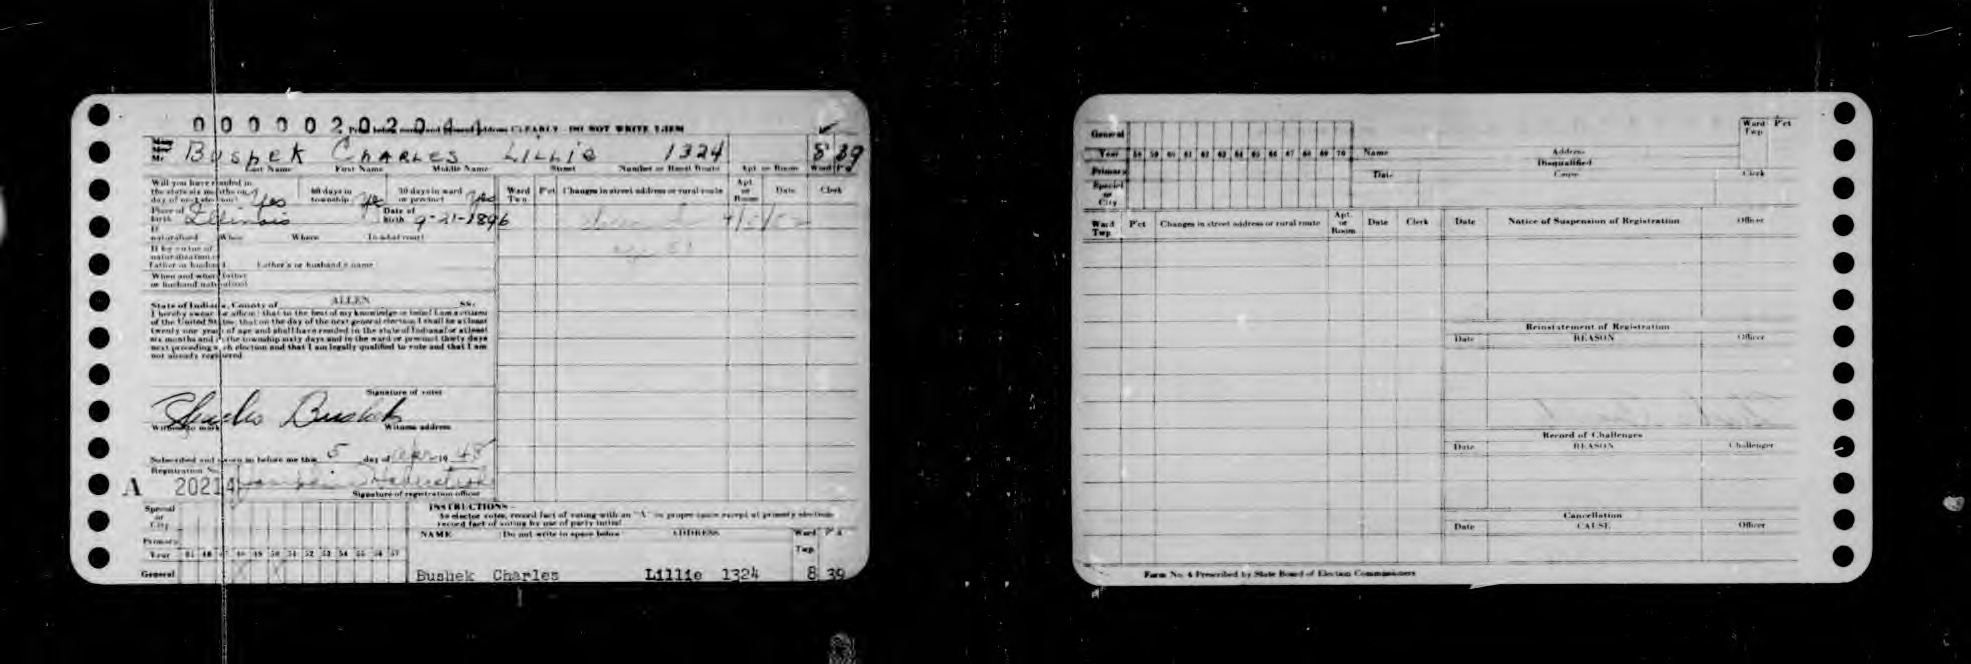 0 0 0 0 0 2 0 2 0 4 4
CLEARLY - DO NOT WRITE
Mr. Bushek Charles Lillie 1324 8 39
Last Name First Name Middle Name Street Number or Rural Route Apt or Room Ward Pct
Will you have resided in the state six months on day of next election? Yes
60 days in township Yes
30 days in ward or precinct Yes
Ward Twp. P'ct Changes in street address or rural route Apt. or Room Date Clerk
Place of birth Illinois
Date of birth 9-21-1896
If naturalized When Where In what court
If by virtue of naturalization of Father or husband Father's or husband's name
When and where father or husband naturalized
State of Indiana, County of ALLEN SS:
I hereby swear or affirm that to the best of my knowledge or belief I am a citizen
of the United States; that on the day of the next general election I shall be at least
twenty one years of age and shall have resided in the state of Indiana for at least
six months and in the township sixty days and in the ward or precinct thirty days
next preceding such election and that I am legally qualified to vote and that I am
not already registered
Signature of voter
Charles Bushek
Witness to mark Witness address
Subscribed and sworn to before me this 5 day of Apr 19 48
Registration No.
A 20214
Signature of registration officer
INSTRUCTIONS
As elector votes, record fact of voting with an "X" in proper space except at primary election
record fact of voting by use of party initial
Special or City
Primary
Year 48 49 50 51 52 53 54 55 56 57
General X X
NAME (Do not write in space below) ADDRESS Ward Twp. P'ct
Bushek Charles Lillie 1324 8 39
General
Year 58 59 60 61 62 63 64 65 66 67 68 69 70 Name Address
Ward Twp P'ct
Disqualified
Primary Date Cause Clerk
Special or City
Ward Twp. P'ct Changes in street address or rural route Apt. or Room Date Clerk
Date Notice of Suspension of Registration Officer
Reinstatement of Registration
Date REASON Officer
Record of Challenges
Date REASON Challenger
Cancellation
Date CAUSE Officer
Form No. 4 Prescribed by State Board of Election Commissioners